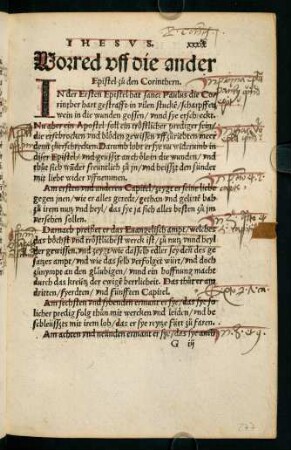 IHESVS.
Vorred vff die ander
Epistel zů den Corinthern.
IN der Ersten Epistel hat sanct Paulus die Co
rinther hart gestrafft in vilen stucken/ scharpffen
wein in die wunden gossen/ vnd sye erschreckt.
Nu aber ein Apostel soll ein trôstlicher prediger sein/
die erschrocken vnd blôden gewissen vffzurichten meer
dann zu erschrecken. Darumb lobt er sye nu widerumb in
diser Epistel/ vnd geüsst auch ôle in die wunden/ vnd
thůt sich wider freüntlich zů jn/ vnd heisst den sünder
mit liebe wider vffnemmen.
Am ersten vnd andern Capitel/ zeygt er seine liebe
gegen jnen/ wie er alles geredt/ gethan vnd gelitté hab
zů irem nutz vnd heyl/ das sye ja sich alles besten zů jm
versehen sollen.
Darnach preiset er das Euangelisch ampt/ welches
das hôchst vnd trôstlichst werck ist/ zů nutz vnd heyl
der gewissen/ vnd zeygt wie dasselb edler sey den des ge
setzes ampt/ wie das selb verfolgt würt/ vnd doch
zůnympt an den glaubigen/ vnd ein hoffnung macht
durch das kreütz der ewigé herrlicheit. Das thůt er am
dritten/ fyerdten/ vnd fünfften Capitel.
Am sechsten vnd sibenden ermant er sye/ das sye so
licher predig folg thůn mit wercken vnd leiden/ vnd be
schleüsst mit irem lob/ das er sye reytze fürt zů faren.
Am achten vnd neünden ermant er sye/ das sye auch
G iij
277